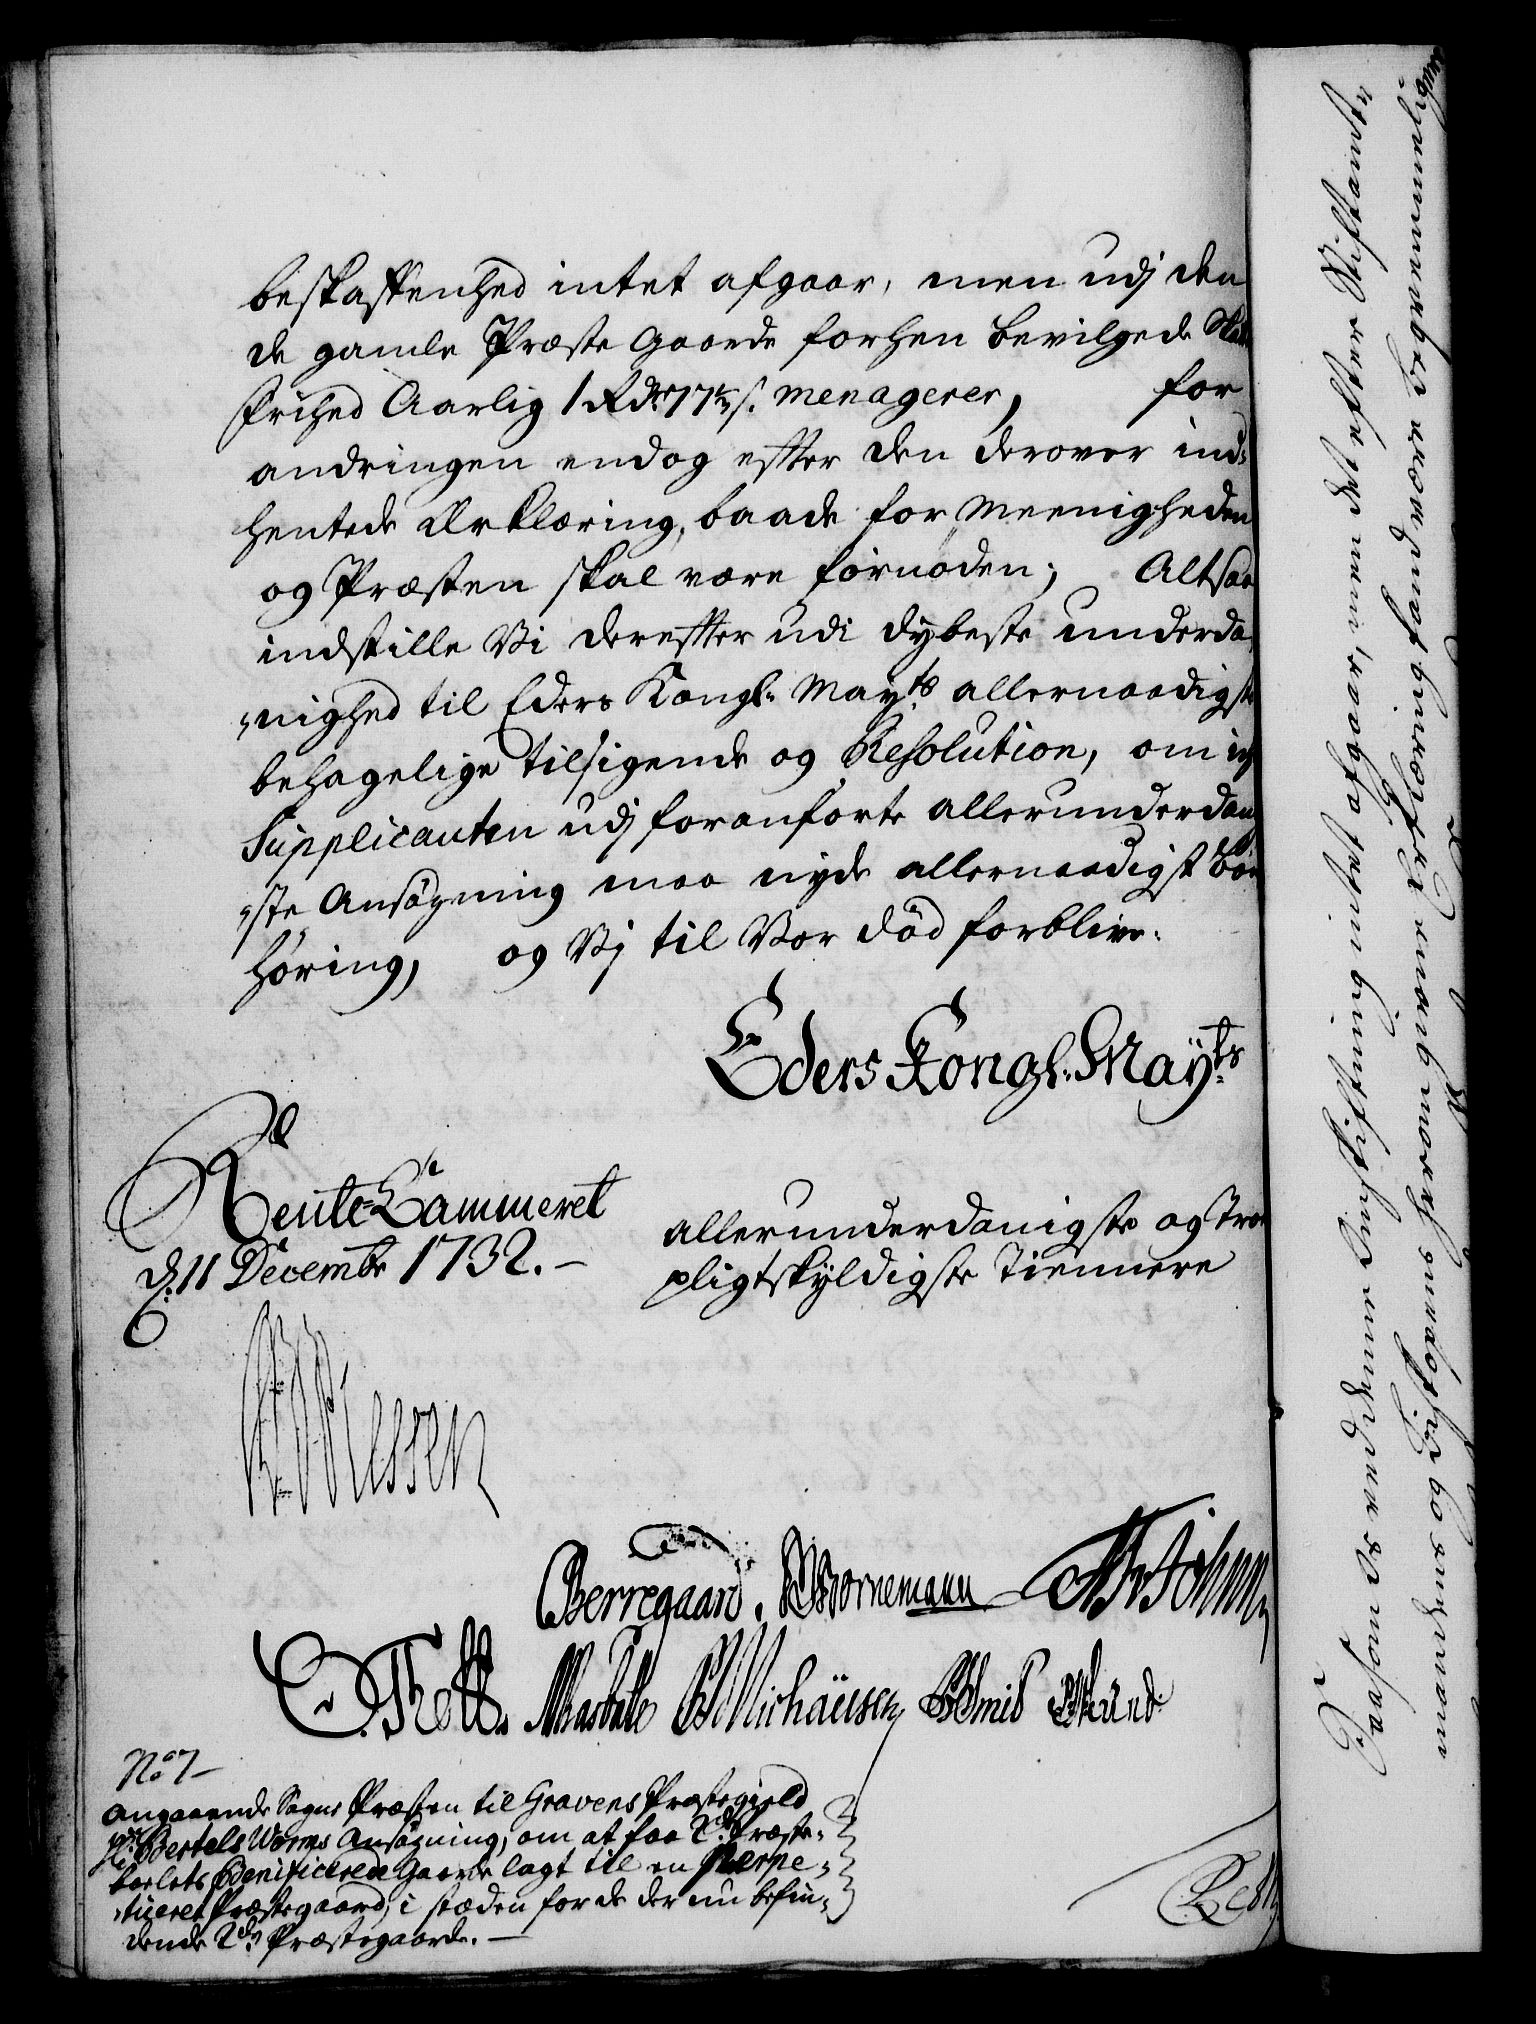 beskaffenhed intet afgaar, men udj den
de gamle Præste Gaarde forhen bevilgede
frihed Aarlig 1 Rdr 17 s. menagerer, for
andringen endog effter den derover ind-
hentede Erklæring, baade for Meenigheden
og Præsten skal være fornøden; Altsaa
indstille Vi dereffter udi dybeste underda-
nighed til Eders Kongl. Mayts allernaadigste
behagelige tilsigende og Resolution, om
Supplicanten udj foranførte allerunderdan
ste Ansøgning maa nyde allernaadigst Bøn
høring, og Vj til Vor død forblive.
Eders Kongl. Mayts
Rente Cammeret
d. 11 Decembr 1732.
allerunderdanigste og Troe
pligtskyldigste Tiennere
Berregaard. Bornemann
No 7
angaaende Sogne Præsten til Gravens Præstegield
Hr. Bertel Worms Ansøgning, om at faa 2de Præste-
boelets Benificerede Gaarde lagt til en Perpe-
tueret Præstegaard, i stæden for de der nu befin-
dende 2de Præstegaarde.
Saasom es ved denne Indstiftning intet afgaar, men det efter Stiftamt-
mandens og Biskopens herom givne Erklæring fand være beqvemmelig